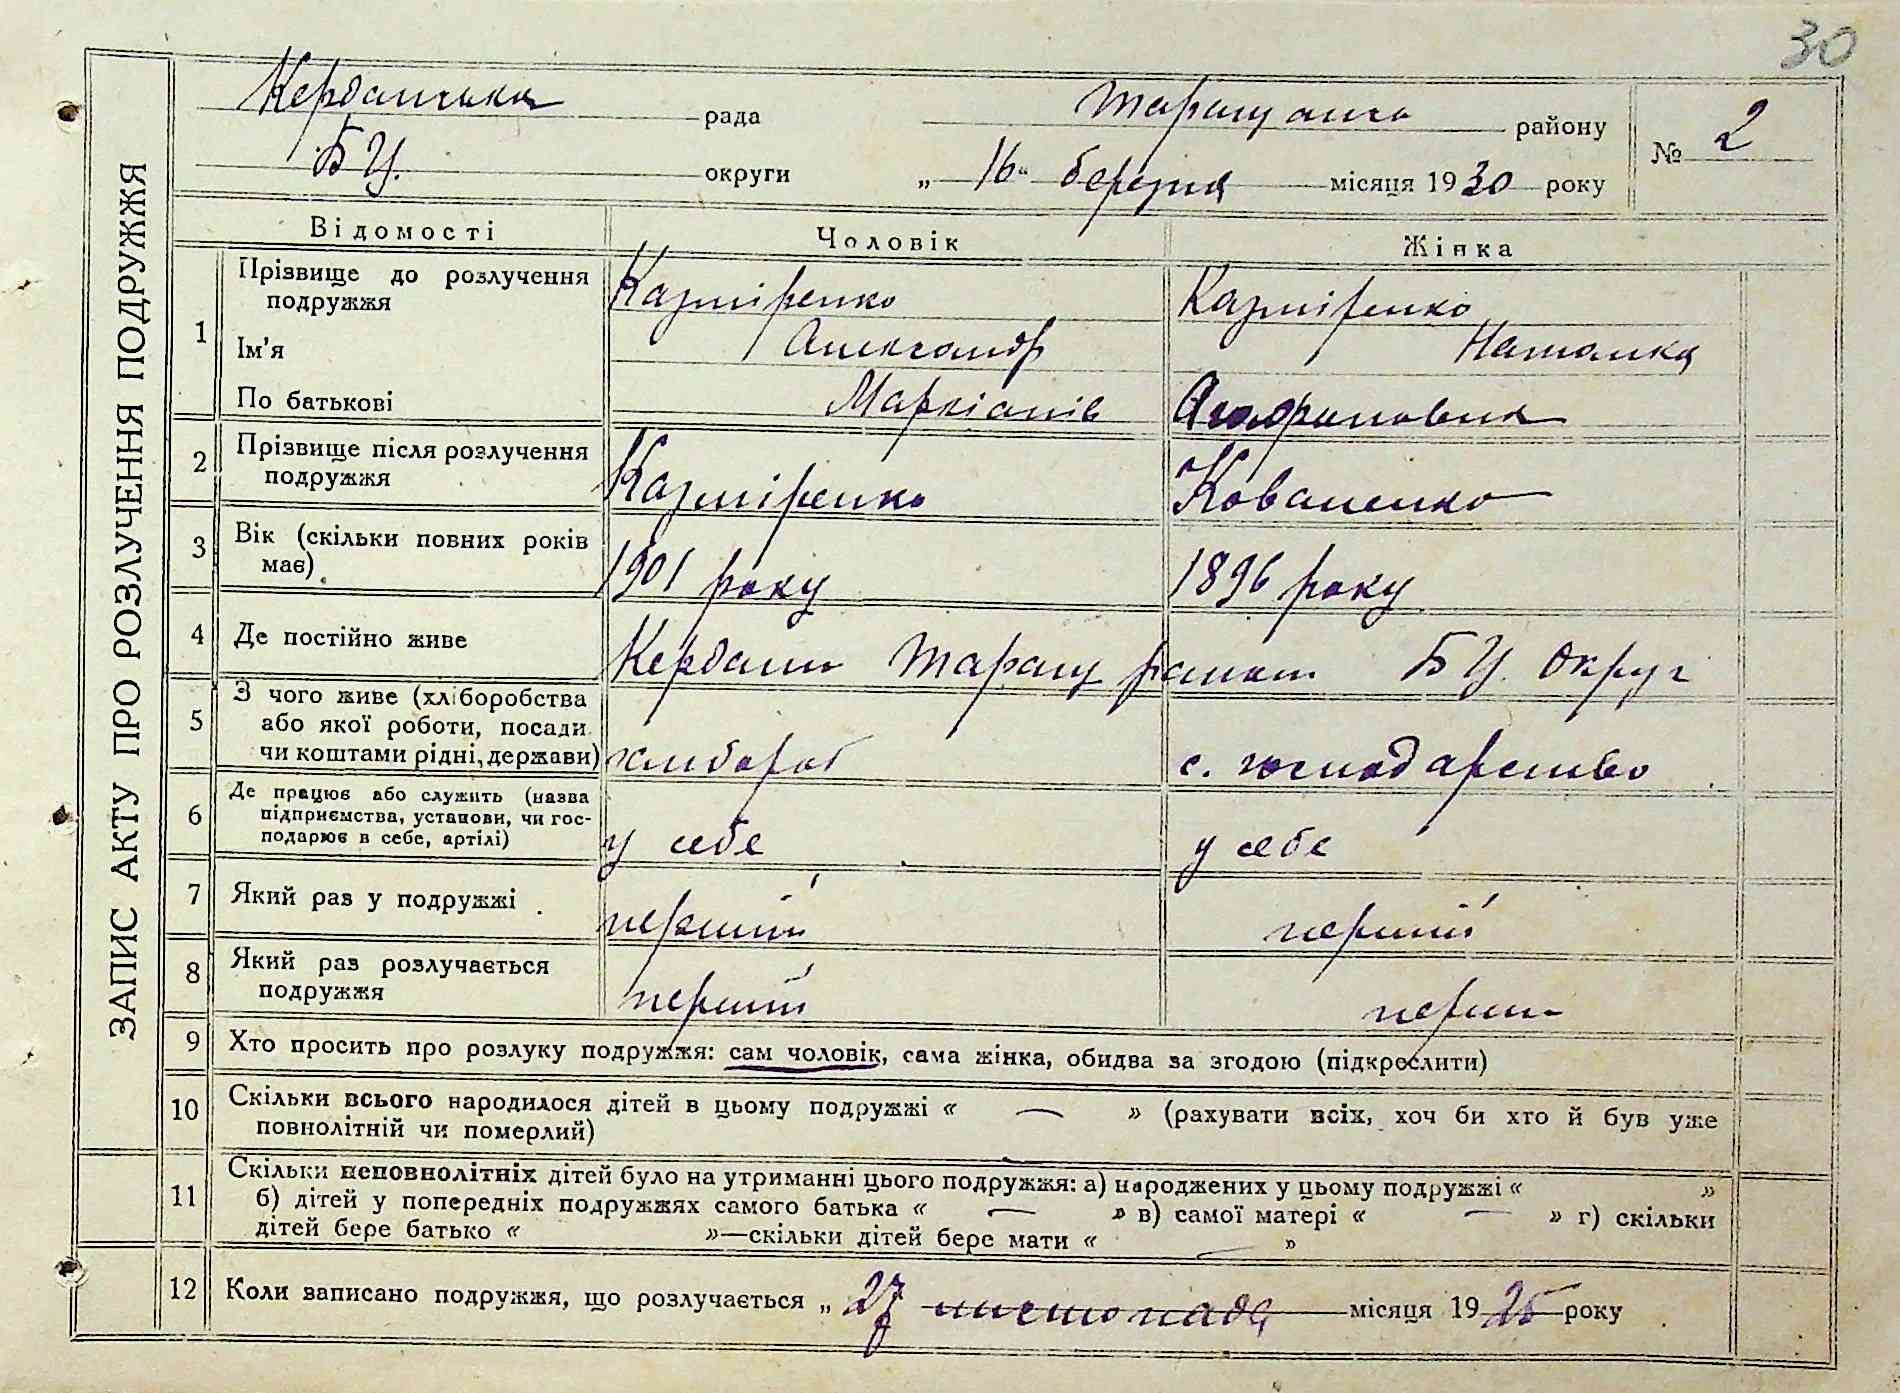 30
ЗАПИС АКТУ ПРО РОЗЛУЧЕННЯ ПОДРУЖЖЯ
Кердanська рада Таращансь району № 2
БЦ. округи „ 16 " березня місяця 1930 року
Відомості Чоловік Жінка
1 Прізвище до розлучення Казміренко Казміренко
подружжя
Ім'я Александр Наталка
По батькові Маркіанів
2 Прізвище після розлучення Казміренко Коваленко
подружжя
3 Вік (скільки повних років 1901 року 1896 року
має)
4 Де постійно живе Таращ району БЦ. Округ
5 З чого живе (хліборобства
або якої роботи, посади
чи коштами рідні, держави) хлибороб с. господарство
6 Де працює або служить (назва
підприємства, установи, чи гос-
подарює в себе, артілі) у себе у себе
7 Який раз у подружжі перший перший
8 Який раз розлучається
подружжя перший перши
9 Хто просить про розлуку подружжя: сам чоловік, сама жінка, обидва за згодою (підкреслити)
10 Скільки всього народилося дітей в цьому подружжі « — » (рахувати всіх, хоч би хто й був уже
повнолітній чи померлий)
11 Скільки неповнолітніх дітей було на утриманні цього подружжя: а) народжених у цьому подружжі « »
б) дітей у попередніх подружжях самого батька « — » в) самої матері « — » г) скільки
дітей бере батько « »—скільки дітей бере мати « — »
12 Коли записано подружжя, що розлучається „ 27 листопада місяця 1925 року